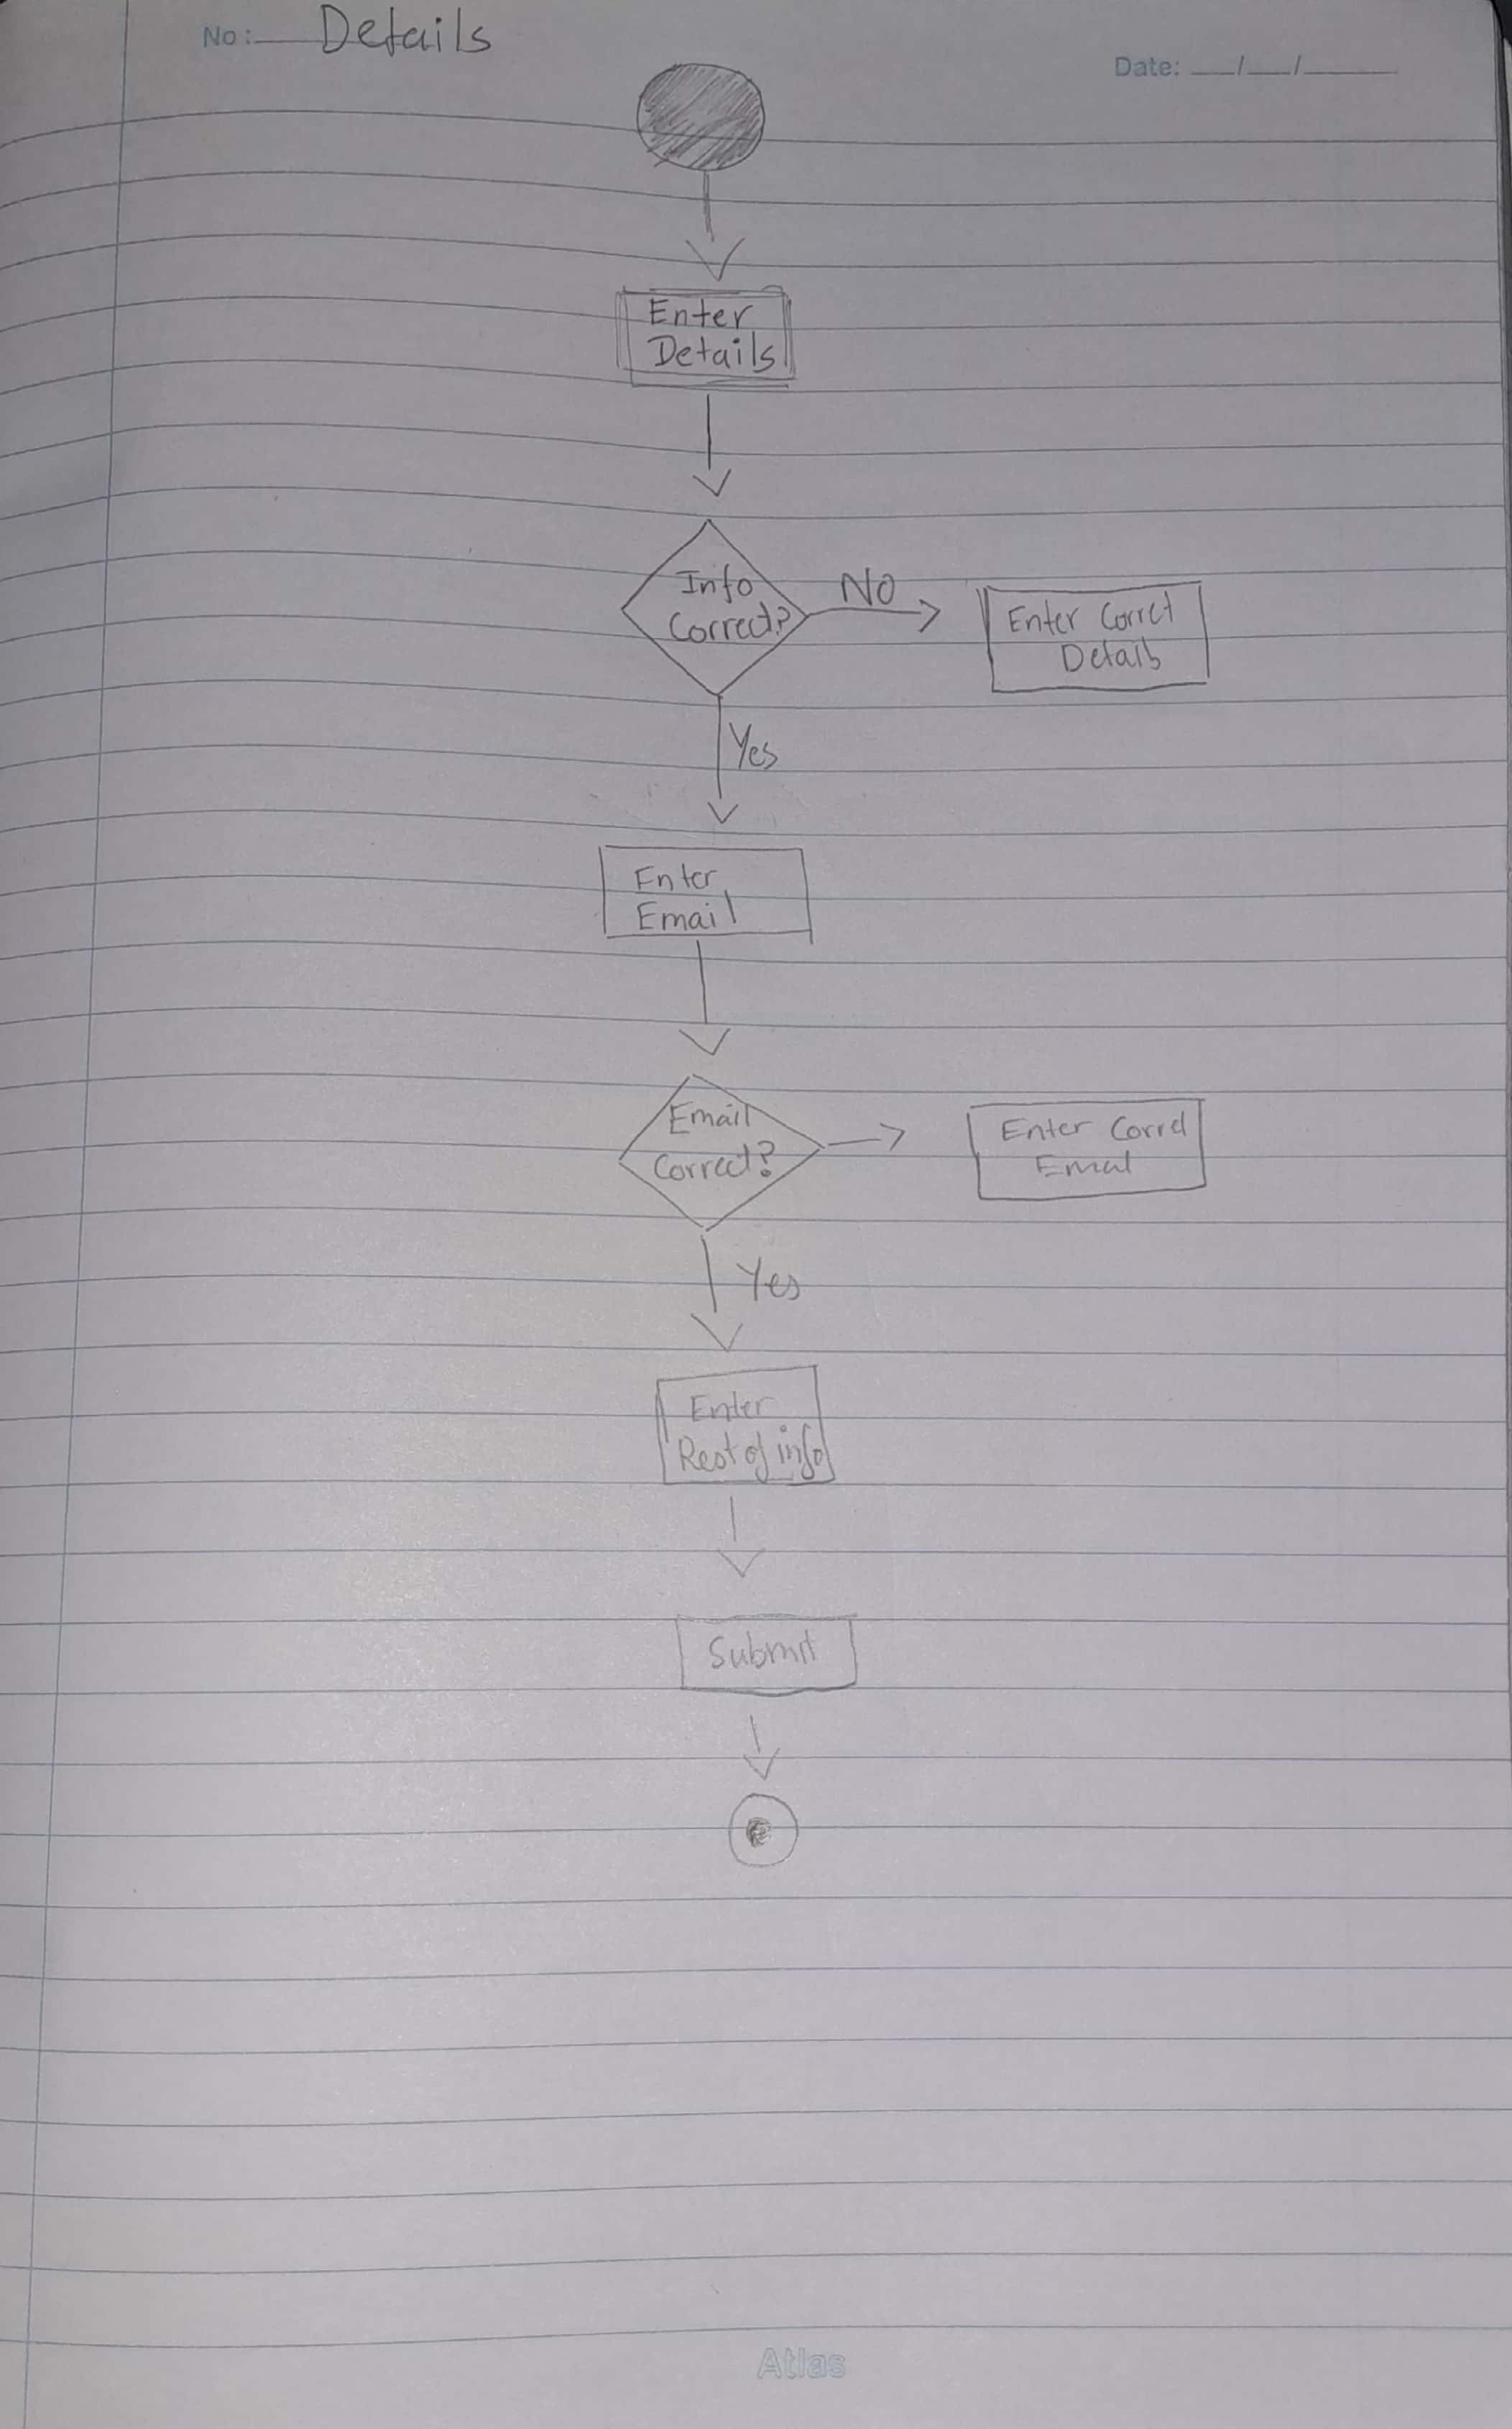 No: Details
Date: __/__/____
Enter
Details
Info
Correct?
NO
Enter Corret
Details
Yes
Enter
Email
Email
Correct?
Enter Corret
Email
Yes
Enter
Rest of info
Submit
Atlas